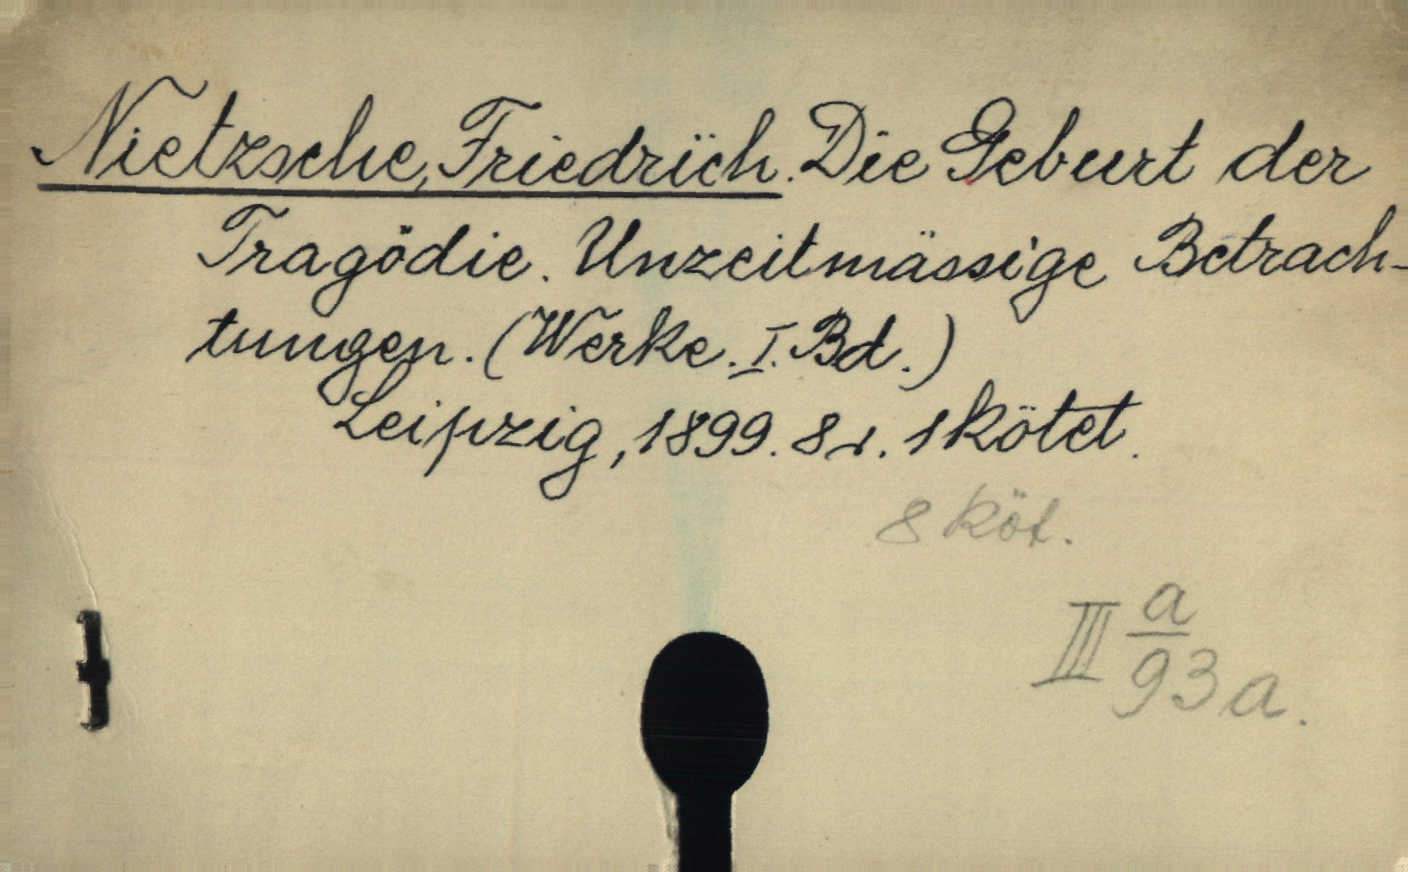 Nietzsche, Friedrich. Die Geburt der
Tragödie. Unzeitmässige Betrach-
tungen. (Werke. I. Bd.)
Leipzig, 1899. 8r. 1 kötet.
8 köt.
III a/93a.